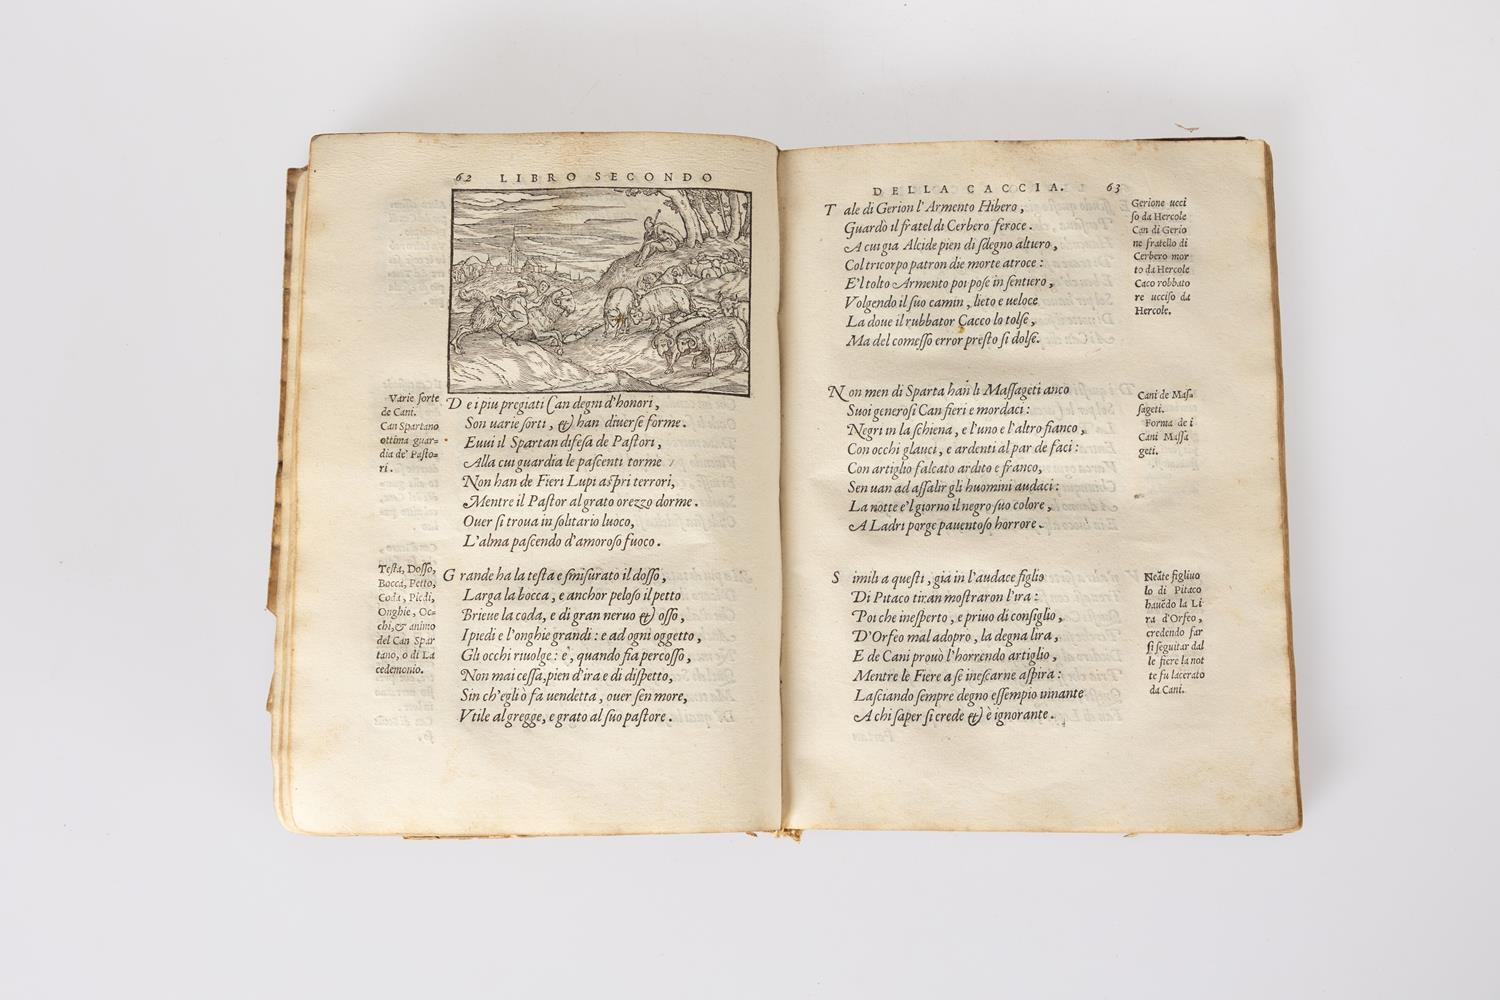 62 LIBRO SECONDO
Varie sorte
de Cani.
Can Spartano
ottima guar-
dia de' Pasto-
ri.
D e i piu pregiati Can degni d'honori,
Son uarie sorti, & han diuerse forme.
Euui il Spartan difesa de Pastori,
Alla cui guardia le pascenti torme
Non han de Fieri Lupi aspri terrori,
Mentre il Pastor al grato orezzo dorme.
Ouer si troua in solitario luoco,
L'alma pascendo d'amoroso fuoco.
Testa, Dosso,
Bocca, Petto,
Coda, Piedi,
Onghie, Oc-
chi, & animo
del Can Spar
tano, o di La
cedemonio.
G rande ha la testa e smisurato il dosso,
Larga la bocca, e anchor peloso il petto
Brieue la coda, e di gran neruo & osso,
I piedi e l'onghie grandi: e ad ogni oggetto,
Gli occhi riuolge: è, quando fia percosso,
Non mai cessa, pien d'ira e di dispetto,
Sin ch'egli ò fa uendetta, ouer sen more,
Vtile al gregge, e grato al suo pastore.
DELLA CACCIA. 63
T ale di Gerion l'Armento Hibero,
Guardò il fratel di Cerbero feroce.
A cui gia Alcide pien di sdegno altiero,
Col tricorpo patron die morte atroce:
E'l tolto Armento poi pose in sentiero,
Volgendo il suo camin, lieto e ueloce
La doue il rubbator Cacco lo tolse,
Ma del comesso error presto si dolse.
Gerione ucci
so da Hercole
Can di Gerio
ne fratello di
Cerbero mor
to da Hercole
Caco robbato
re ucciso da
Hercole.
N on men di Sparta han li Massageti anco
Suoi generosi Can fieri e mordaci:
Negri in la schiena, e l'uno e l'altro fianco,
Con occhi glauci, e ardenti al par de faci:
Con artiglio falcato ardito e franco,
Sen uan ad assalir gli huomini audaci:
La notte e'l giorno il negro suo colore,
A Ladri porge pauentoso horrore.
Cani de Mas-
sageti.
Forma de i
Cani Massa
geti.
S imili a questi, già in l'audace figlio
Di Pitaco tiran mostraron l'ira:
Poi che inesperto, e priuo di consiglio,
D'Orfeo mal adoprò, la degna lira,
E de Cani prouò l'horrendo artiglio,
Mentre le Fiere a se inescarne aspira:
Lasciando sempre degno essempio inante
A chi saper si crede & è ignorante.
Neāte figliuo
lo di Pitaco
hauēdo la Li
ra d'Orfeo,
credendo far
si seguitar dal
le fiere la not
te fu lacerato
da Cani.